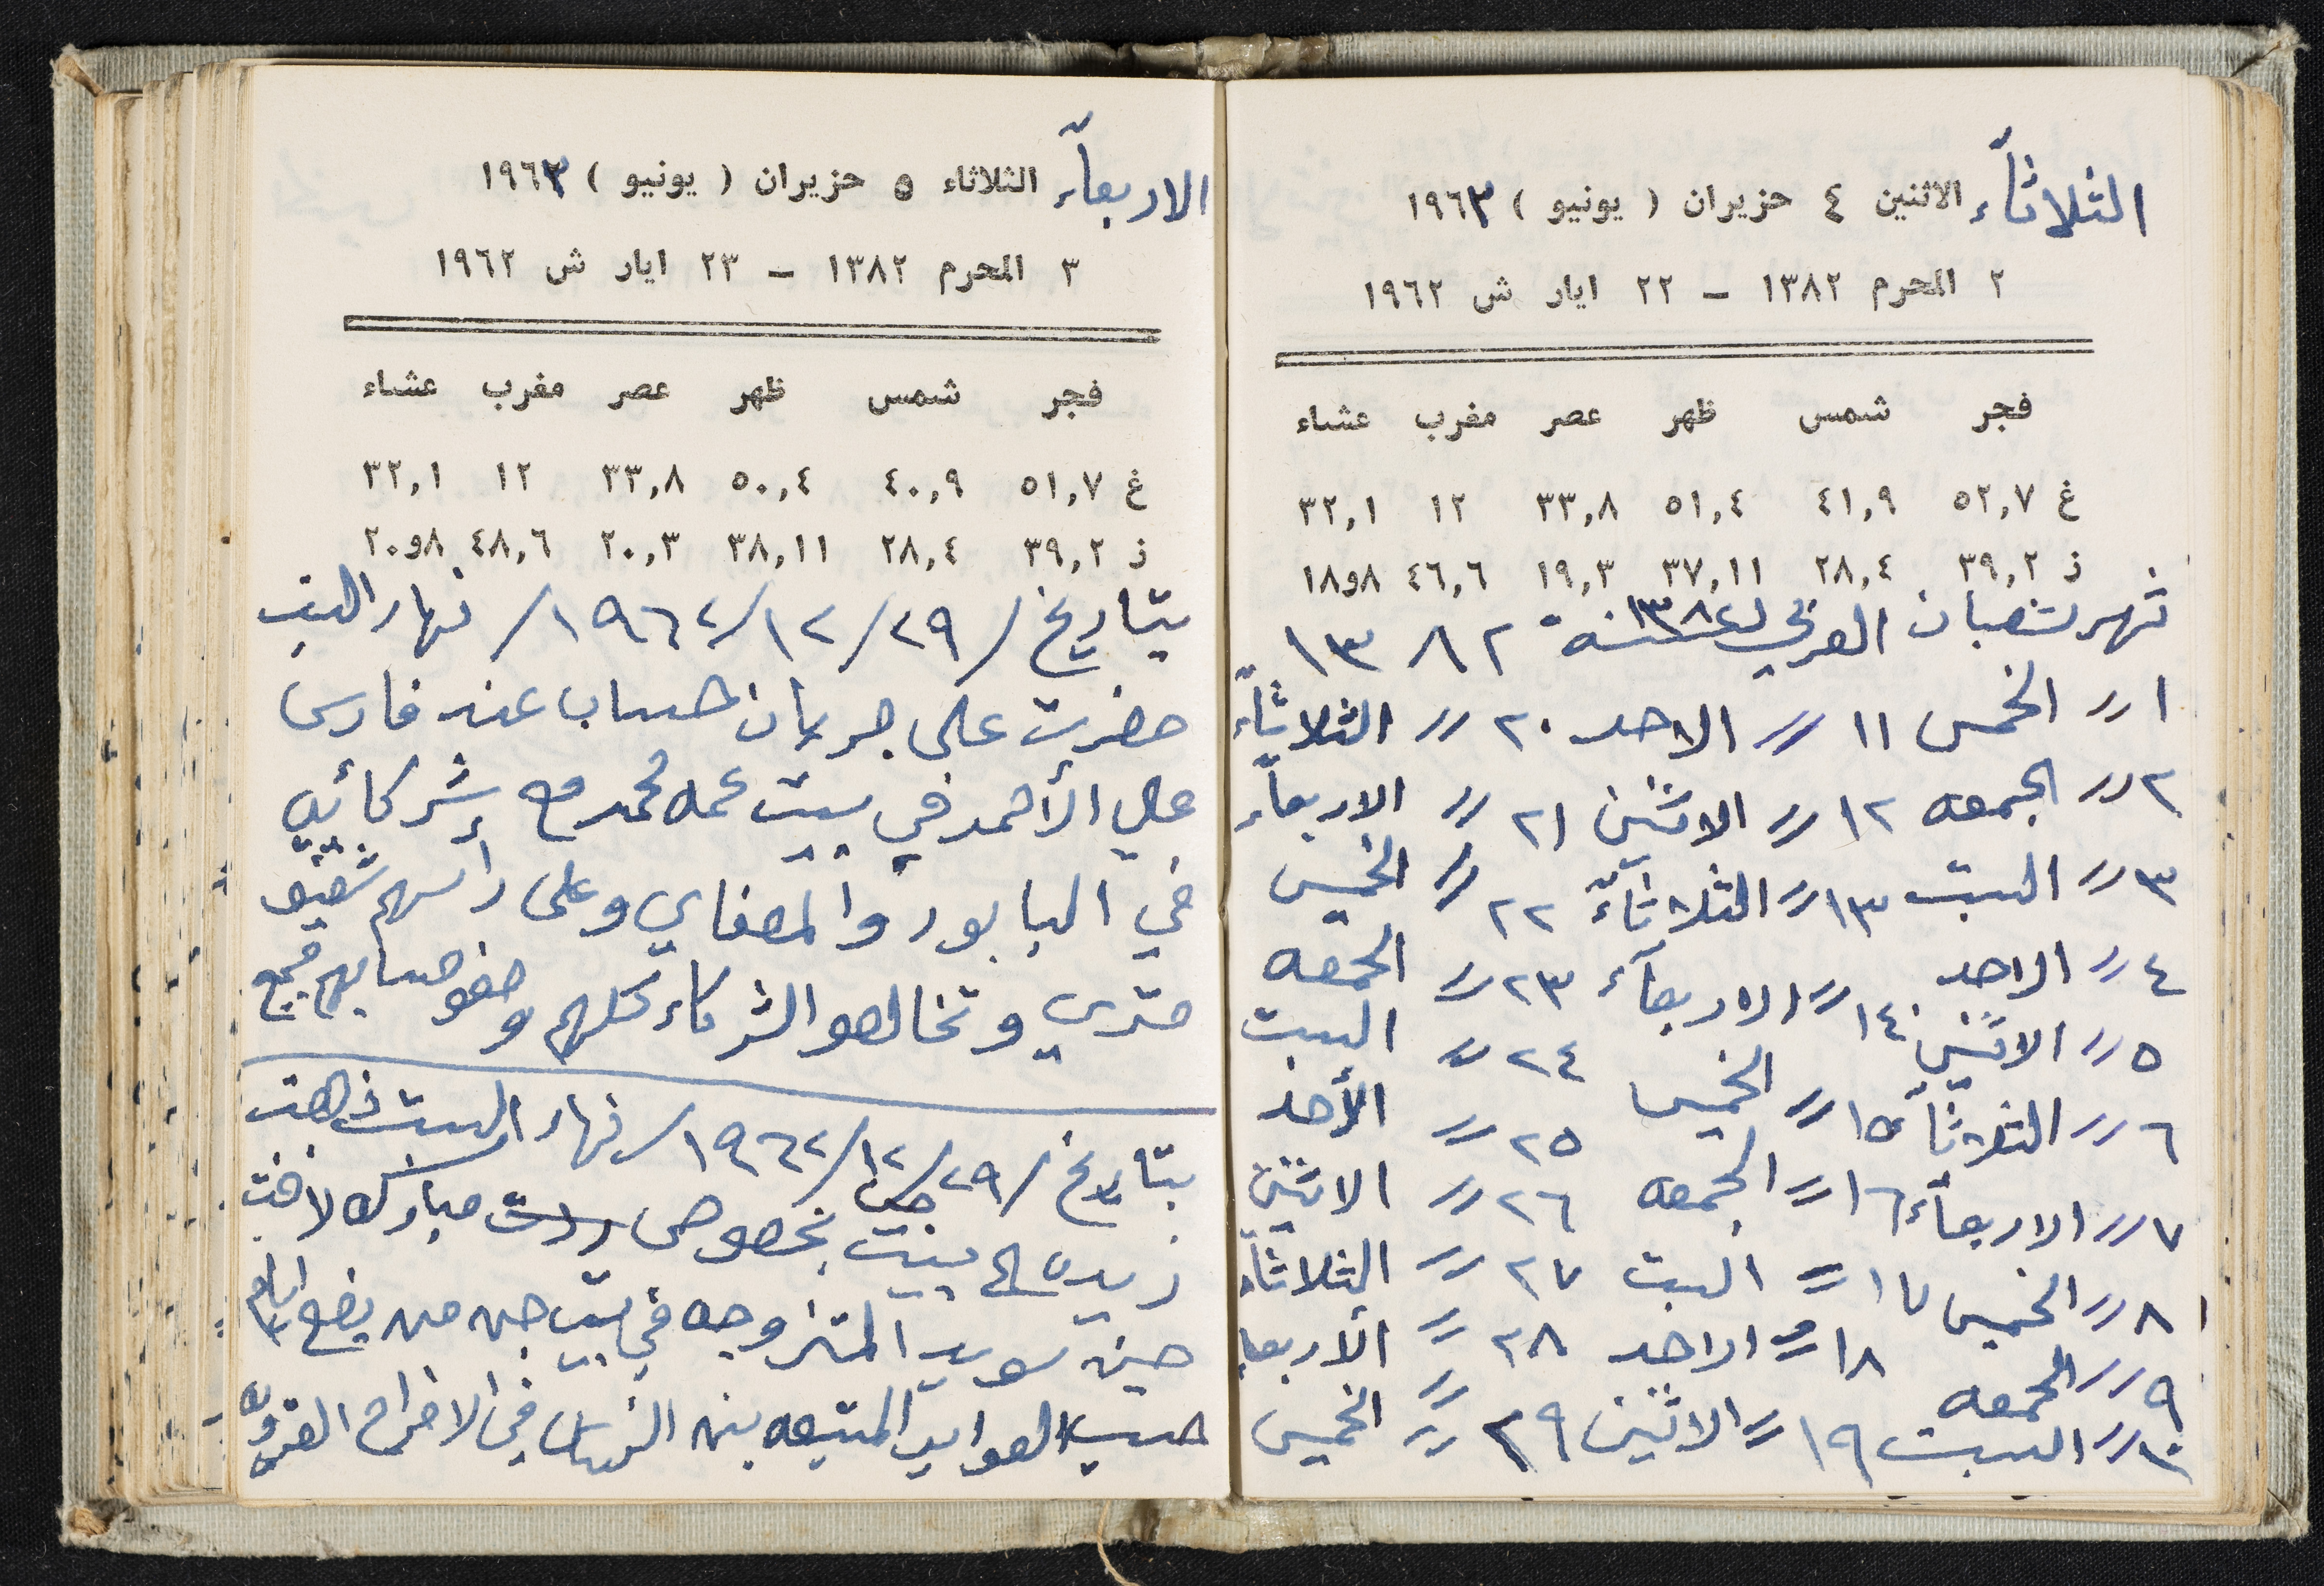 الثلاثآء الاثنين ٤ حزيران ( يونيو ) ١٩٦٣
٢ المحرم ١٣٨٢ – ٢٢ ايار ش ١٩٦٢
فجر شمس ظهر عصر مغرب عشاء
غ ٥٢,٧ ٤١,٩ ٥١,٤ ٣٣,٨ ١٢ ٣٢,١
ز ٣٩,٢ ٢٨,٤ ٣٧,١١ ١٩,٣ ٤٦,٦ ١٨و٨
شهر شعبان العربي لسنة ١٣٨٢
١ // الخمس ١١ // الاحد ٢٠ // الثلاثآء
٢ // الجمعه ١٢ // الاثنين ٢١ // الاربعآء
٣ // السبت ١٣ // الثلاثآء ٢٢ // الخميس
٤ // الاحد ١٤ // الاربعآء ٢٣ // الجمعه
٥ // الاثنين ١٥ // الخميس ٢٤ // السبت
٦ // الثلاثآء ١٦ // الجمعه ٢٥ // الأحد
٧ // الاربعآء ١٧ // السبت ٢٦ // الاثنين
٨ // الخميس ١٨ // الاحد ٢٧ // الثلاثآء
٩ // الجمعه ١٩ // الاثنين ٢٨ // الأربعا
١٠ // السبت ٢٩ // الخميس
الاربعآء الثلاثاء ٥ حزيران ( يونيو ) ١٩٦٣
٣ المحرم ١٣٨٢ – ٢٣ ايار ش ١٩٦٢
فجر شمس ظهر عصر مغرب عشاء
غ ٥١,٧ ٤٠,٩ ٥٠,٤ ٣٣,٨ ١٢ ٣٢,١
ز ٣٩,٢ ٢٨,٤ ٣٨,١١ ٢٠,٣ ٤٨,٦ ٢٠و٨
بتاريخ /٢٩/١٢/١٩٦٢/ نهار السبت
حضرت على جريان حساب عند فارس
علي الأحمد في بيت عمه محمد مع شركائه
في البابور والمصفاي وعلى رأسهم شفيق
متري وتخالصو الشركاء كلهم وصفو حسابهم جميع
بتاريخ /٢٩/١٢/١٩٦٢/ نهار السبت ذهبت
زيده الى بيت بخصوص مبارك لاخت
حينه سويد المتزوجه في بيت جن من بضع ايام
حسب العوايد المتبعه بين الناس في الافراح